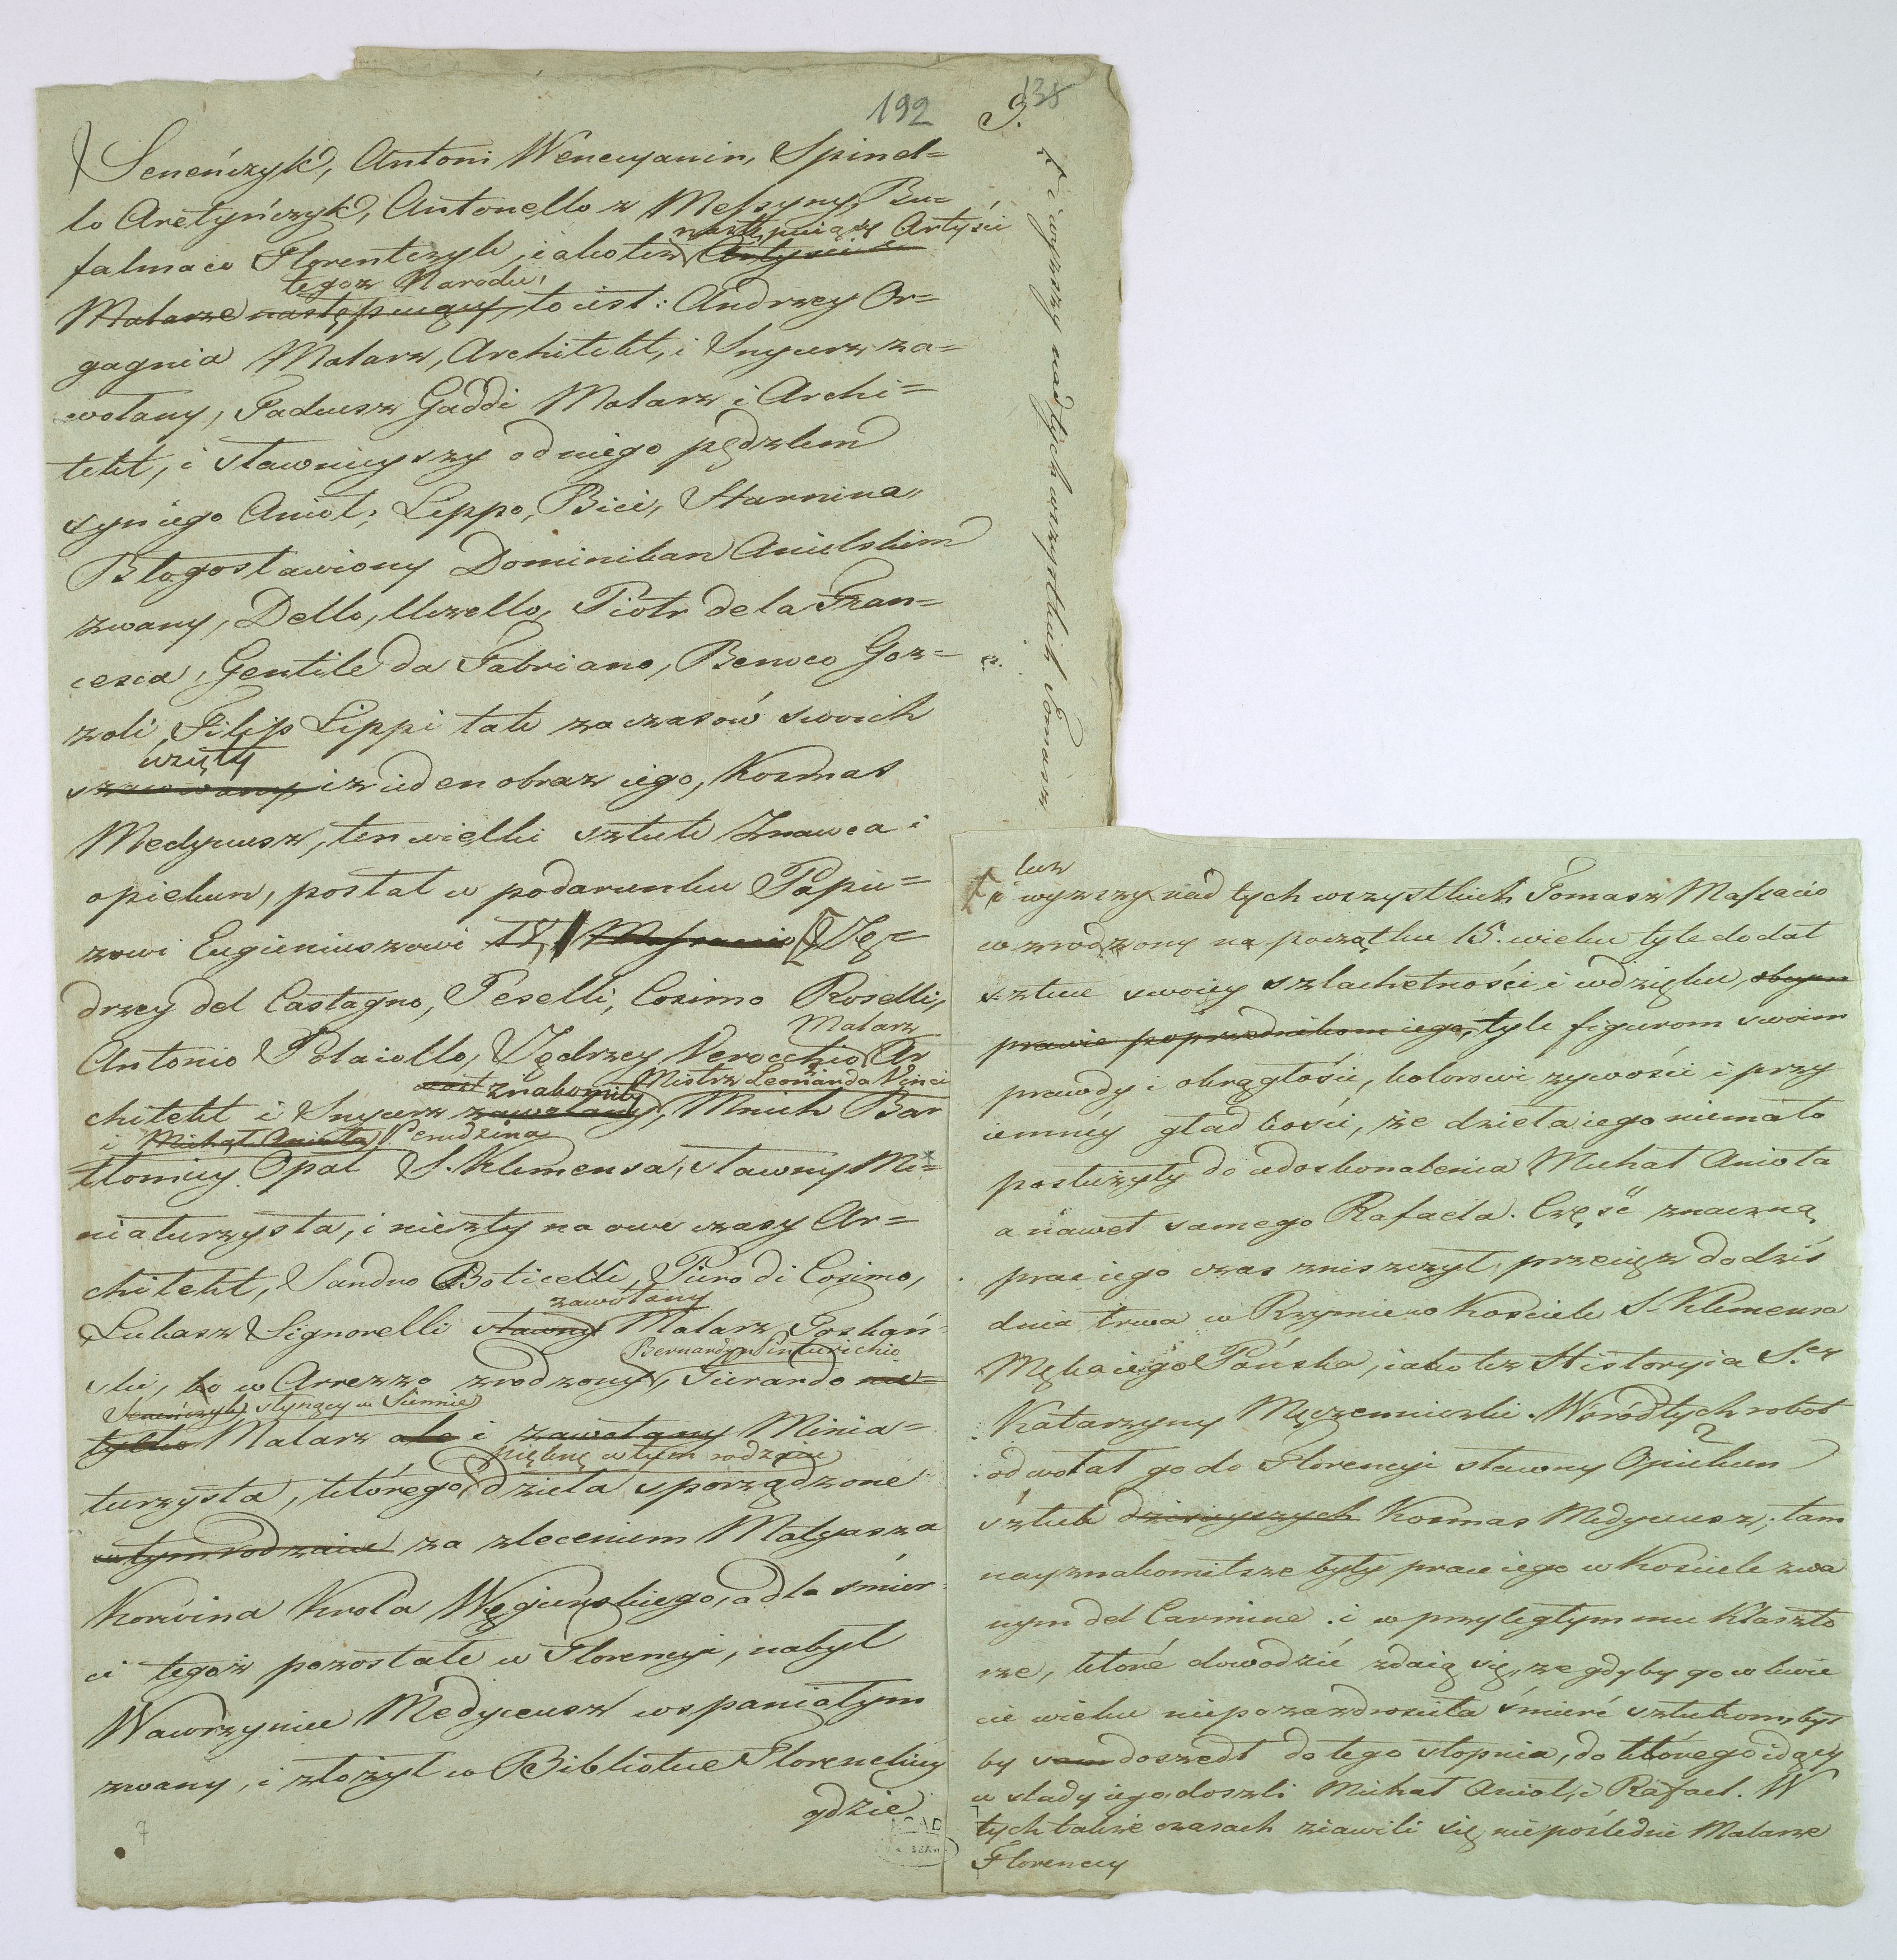 192
9.
138
Seneńczyk, Antoni Wenecyanin, Spinel=
lo Aretyńczyk, Antonello z Messyny, Bu=
następuiący Artyści
falmaco Florentczyk, iakotéz Artyści
tegoz Narodu,
Malarze następuiący, to iest: Andrzey Or=
gagnia Malarz, Architekt, i Snycerz za=
wołany, Tadeusz Gaddi Malarz i Archi=
tekt, i sławnieyszy od niego pędzlem
syn iego Anioł; Lippo, Bici, Starnina,
Błogosławiony Dominikan Anielskim
zwany, Dello, Uccello, Piotr de la Fran=
cesca, Gentile da Fabriano, Benoco Goz=
zoli, Filip Lippi tak za czasów swoich
wzięty
szacowany iz ieden obraz iego, Kosmas
Medyceusz, ten wielki sztuk Znawca i
opiekun, posłał w podarunku Papie=
zowi Eugieniuszowi IV. Massacio Ję=
drzey del Castagno, Peselli, Cosimo Roselli,
Malarz
Antonio Polaiollo, Jędrzey Verocchio Ar
znakomity Mistrz Leonarda Vinci
chitekt i Snycerz zawołany, Mnich Bar
i Michał Anioła Perudzina
tłomiey Opat S. Klemensa, sławny Mi=
niaturzysta, i niezły na owe czasy Ar=
chitekt, Sandro Boticelli, Piero di Cosimo,
zawołany
Łukasz Signorelli sławny Malarz Toskań=
Bernardyn Pinturichio
ski, bo w Arrezzo zrodzony, Gierardo nie=
Seneńczyk słynący w Siennie
tylko Malarz ale i zawołany Minia=
piękne w tym rodzaiu
turzysta, którego dzieła sporządzone
w tym rodzaiu za zleceniem Matyasza
Korwina Krola Węgierskiego, a dla śmier=
ci tegoż pozostałe w Florencyi, nabył
Wawrzyniec Medyceusz wspaniałym
zwany, i złożył w Bibliotece Florenckiey
gdzie
7
i wyzszy nad tych wszystkich Tomasz
lecz
i wyzszy nad tych wszystkich Tomasz Massacio
zrodzony na początku 15. wieku tyle dodał
sztuce swoiey szlachetności i wdzięku, obcym
prawie poprzednikom iego, tyle figurom swoim
prawdy i okrągłości, kolorowi zywości i przy
iemnéy gładkości, że dzieła iego niemało
posłużyły do udoskonalenia Michał Anioła
a nawet samego Rafaela. Część znaczną
prac iego czas zniszczył, przecięz do dziś
dnia trwa w Rzymie w Kościele S. Klemensa
Męka iego Pańska, iako tez Historyia S.ey
Katarzyny Męczenniczki. Wśród tych robot
odwołał go do Florencyi sławny Opiekun
sztuk dzisieyszych Kosmas Medyceusz; tam
nayznakomitsze były prace iego w Kościele zwa
nym del Carmine i w przyległym mu Klaszto
rze, które dowodzić zdaią się, ze gdyby go w kwie
cie wieku niepozazdrościła śmierć sztukom, był
by sam doszedł do tego stopnia, do którego idący
w ślady iego doszli Michał Anioł, i Rafael. W
tych takze czasach ziawili się niepośledni Malarze
Florency